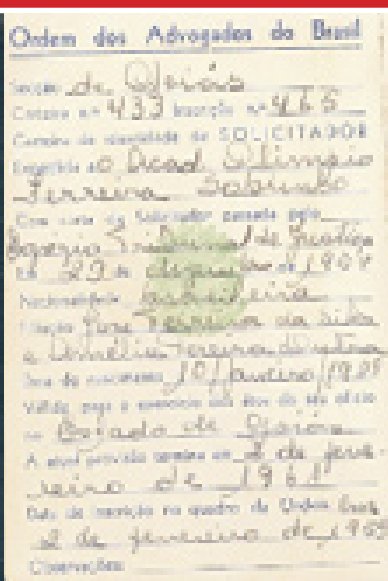 Ordem dos Advogados do Brasil
Secção de Goiás
Carteira nº 433 Inscrição nº 465
Carteira de identidade de SOLICITADOR
Expedida a O Acad. Olimpio
Ferreira Sobrinho
Com carta de Solicitador passada pelo
Egrégio Tribunal de Justiça
Em 23 de de 19
Nacionalidade brasileira
Filiação José Ferreira da Silva
e Ferreira
Data do nascimento 10/janeiro/19
Válida para o exercício seu ofício
no Estado de Goiás
A atual provisão termina em 2 de feve-
reiro de 1961
Data da inscrição no quadro da Ordem
2 de fevereiro de 19
Observações